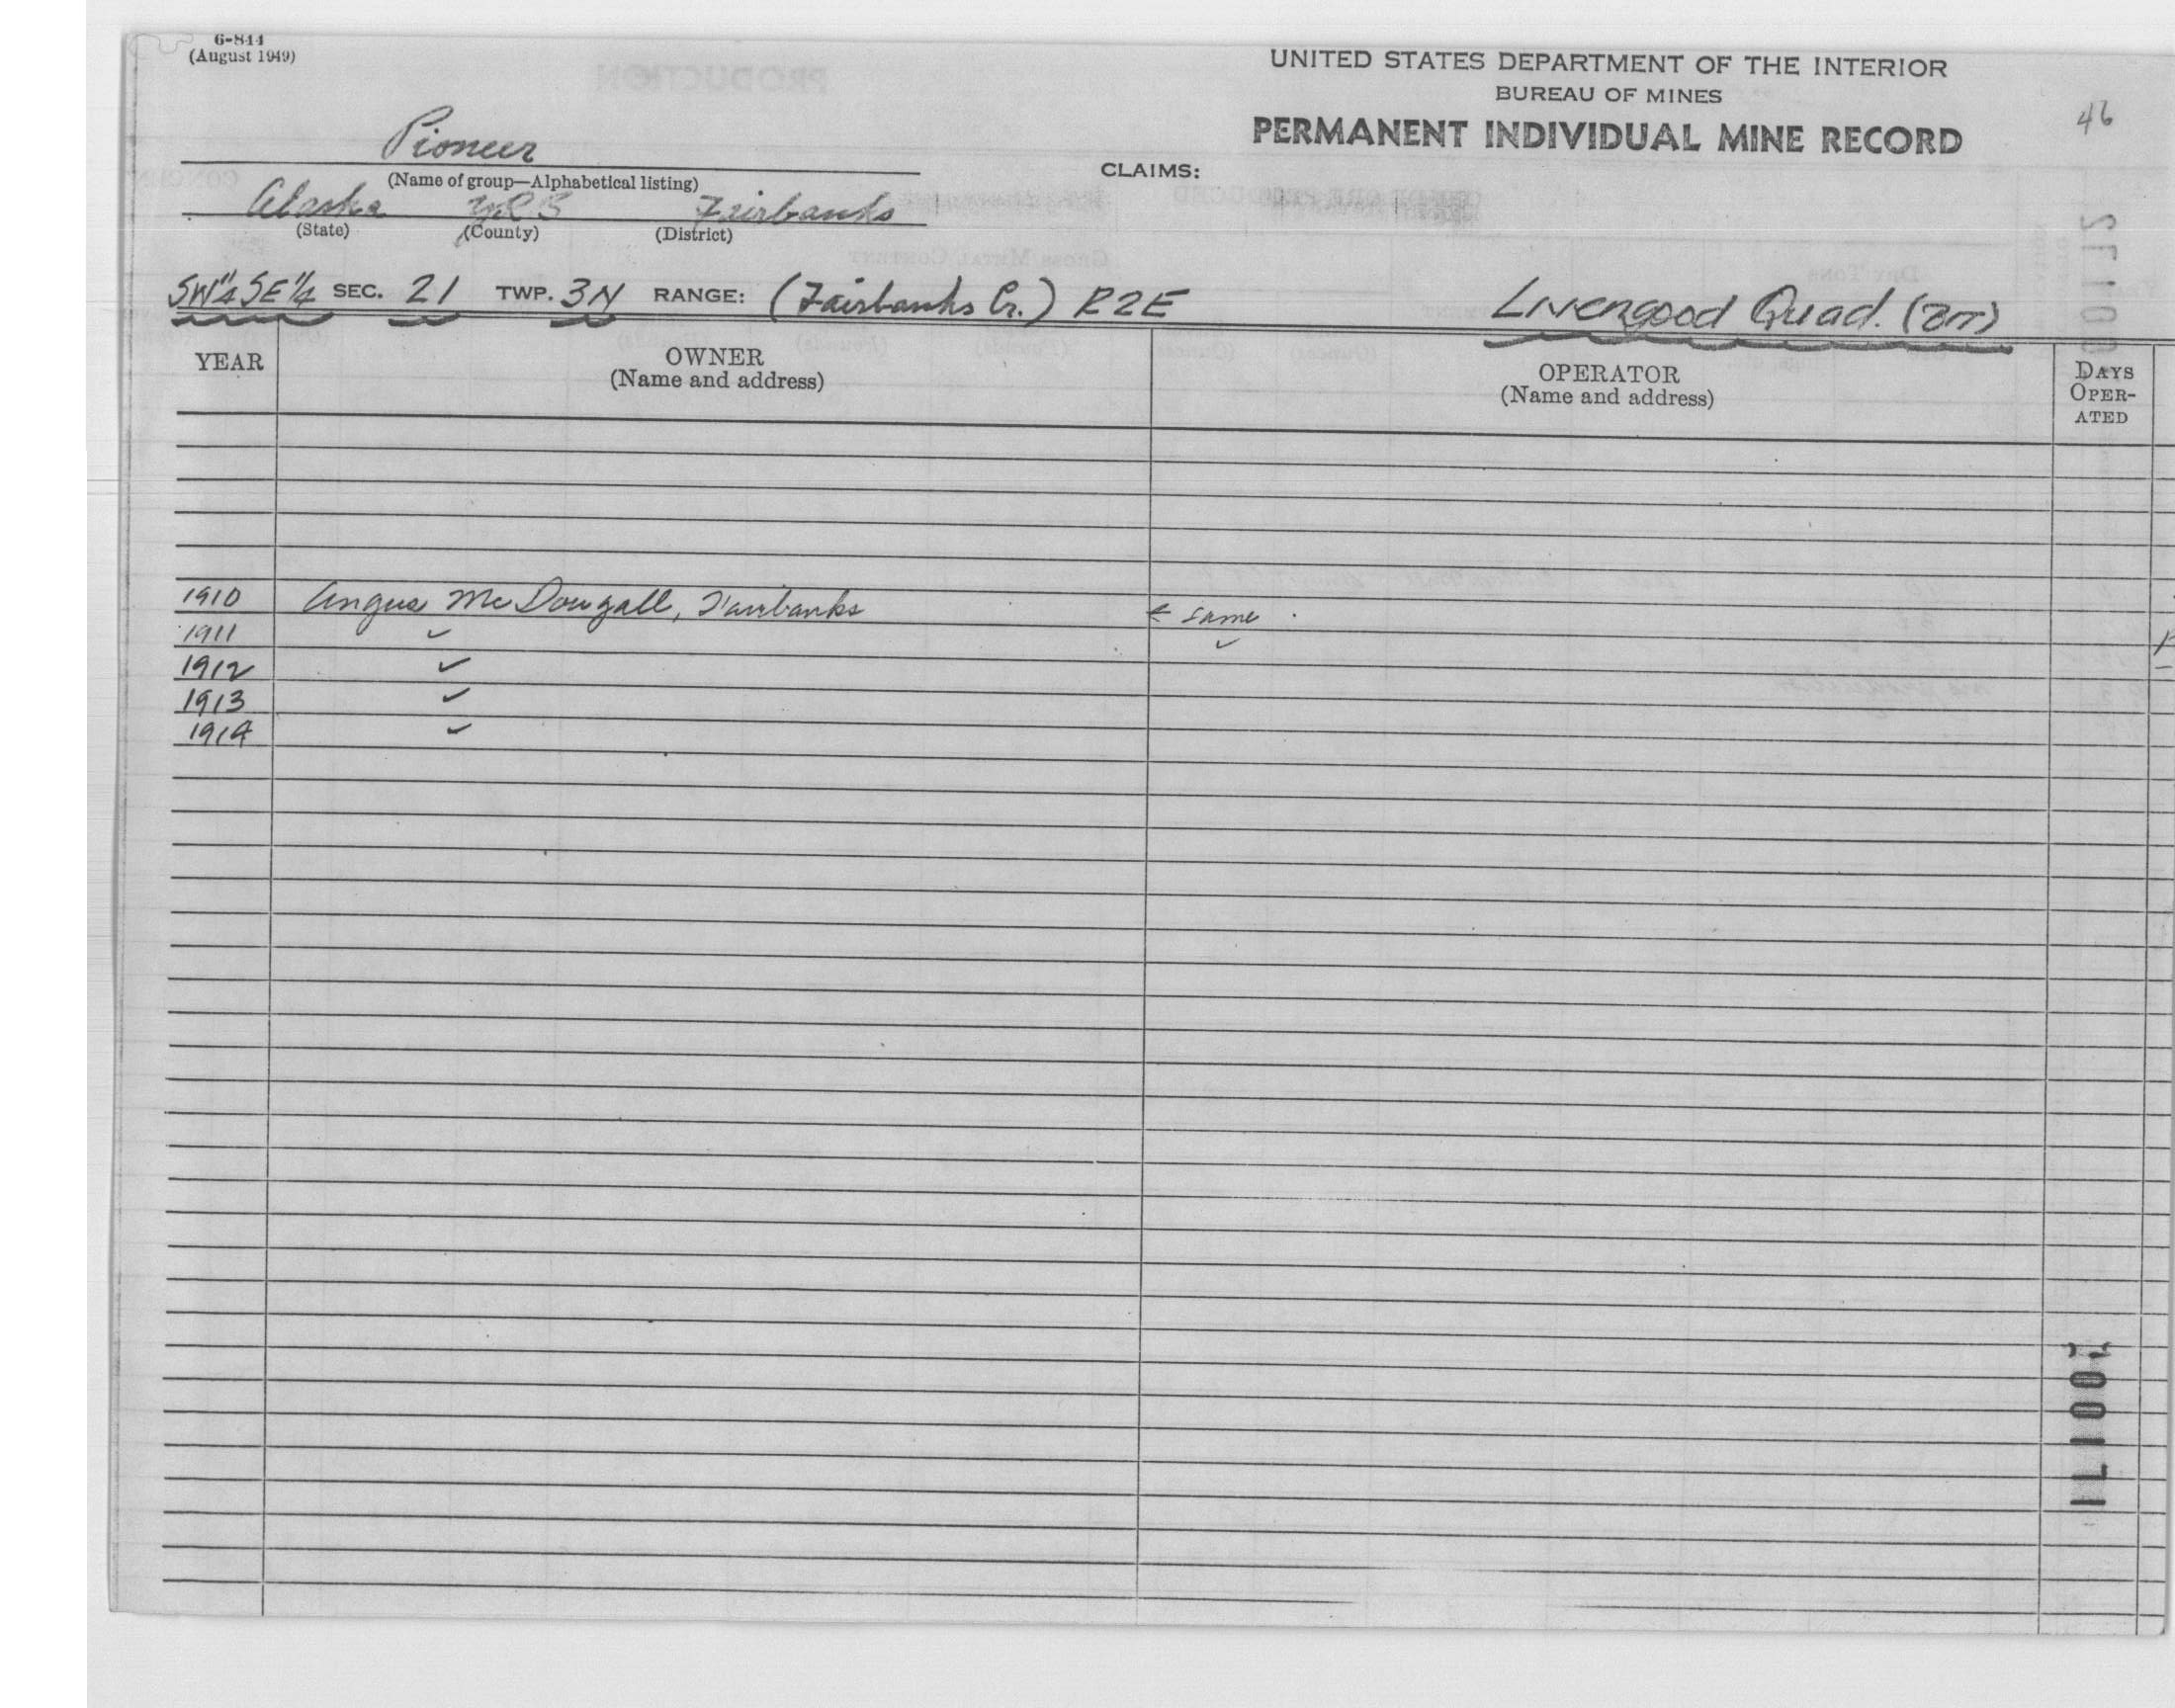 6-844
(August 1949)
UNITED STATES DEPARTMENT OF THE INTERIOR
BUREAU OF MINES
PERMANENT INDIVIDUAL MINE RECORD
46
Pioneer
(Name of group—Alphabetical listing)
CLAIMS:
Alaska YRB Fairbanks
(State) (County) (District)
SW¼ SE¼ SEC. 21 TWP. 3N RANGE: (Fairbanks Cr.) R2E Livengood Quad.
YEAR OWNER OPERATOR DAYS
(Name and address) (Name and address) OPER-
ATED
1910 Angus McDougall, Fairbanks ← same
1911 ✓ ✓
1912 ✓
1913 ✓
1914 ✓